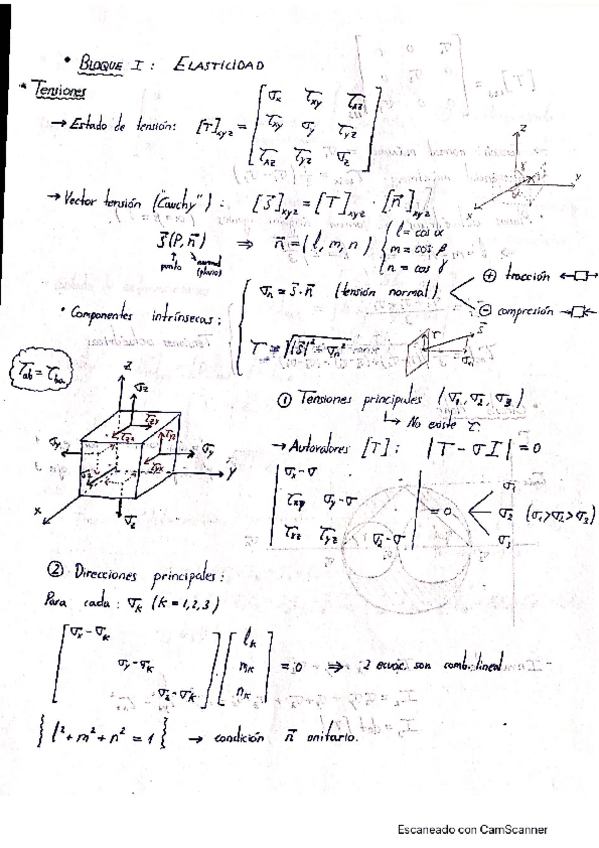 • BLOQUE I: ELASTICIDAD
* Tensiones
→ Estado de tensión: [T]xyz = [σx τxy τxz
τxy σy τyz
τxz τyz σz]
→ Vector tensión ("Cauchy"): [s⃗]xyz = [T]xyz · [n⃗]xyz
s⃗(P, n⃗) ⇒ n⃗ = (l, m, n) { l = cos α
m = cos β
n = cos γ
punto normal (plano)
• Componentes intrínsecas: { σn = s⃗ · n⃗ (tensión normal) < ⊕ tracción
⊖ compresión
τ = √|s⃗|² - σn²
τ s⃗ σn
z y x
τab = τba
z σz τzy τzx τyz τyx σy σy σx y x σz
① Tensiones principales (σ1, σ2, σ3)
↳ No existe τ.
→ Autovalores [T]: |T - σI| = 0
|σx-σ
τxy σy-σ
τxz τyz σz-σ| = 0 < σ1
σ2 (σ1>σ2>σ3)
σ3
② Direcciones principales:
Para cada: σk (k=1,2,3)
[σx-σk
σy-σk
σz-σk] [lk
mk
nk] = 0 ⇒ 2 ecuac. son comb. lineal
{l²+m²+n² = 1} → condición n⃗ unitario.
Escaneado con CamScanner